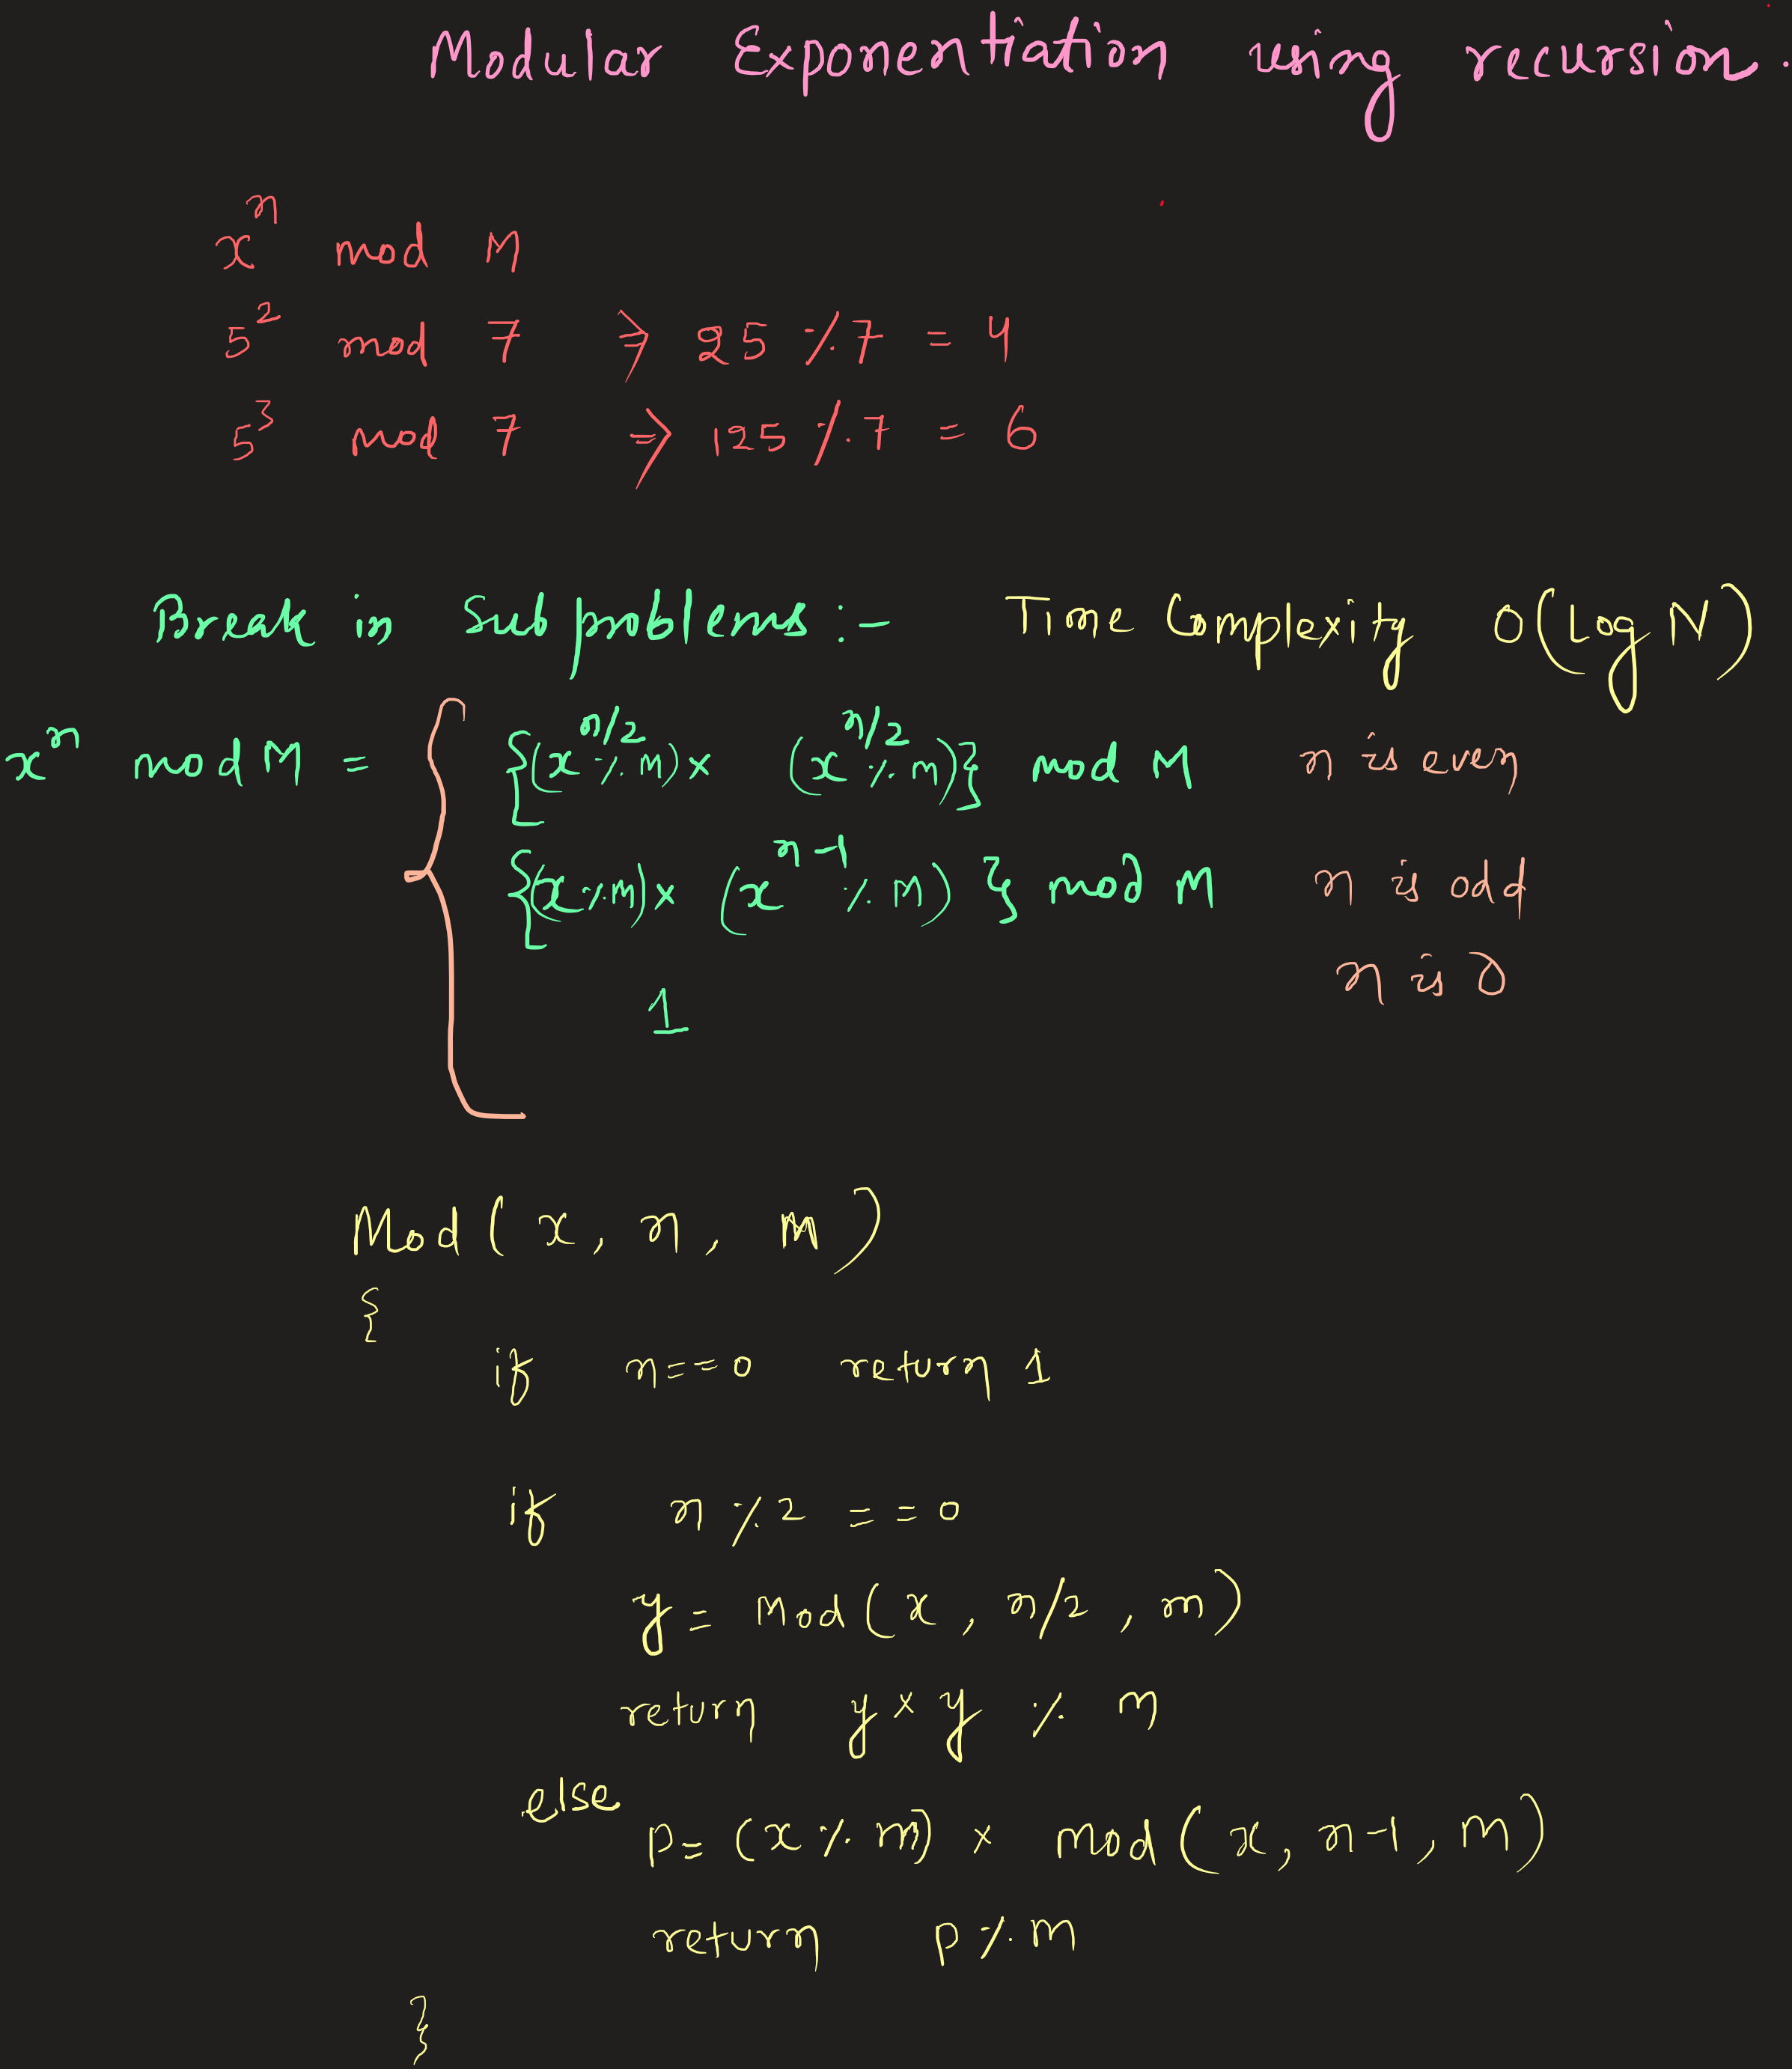 Modular Exponentiation using recursion.
xⁿ mod M
5² mod 7 => 25 % 7 = 4
5³ mod 7 => 125 % 7 = 6
Break in Subproblems:- Time Complexity O(Log N)
xⁿ mod M = {
{(x^n/2 % m) × (x^n/2 % m)} mod M n is even
{(x % m) × (x^n-1 % m) } mod M n is odd
1 n is 0
Mod ( x, n, m )
{
if n==0 return 1
if n % 2 == 0
y = Mod (x, n/2, m)
return y × y % m
else
p = (x % m) × mod (x, n-1, m)
return p % m
}